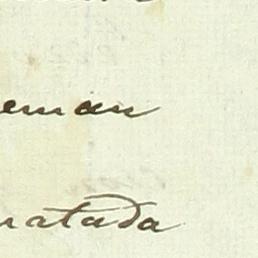 eman
ratada